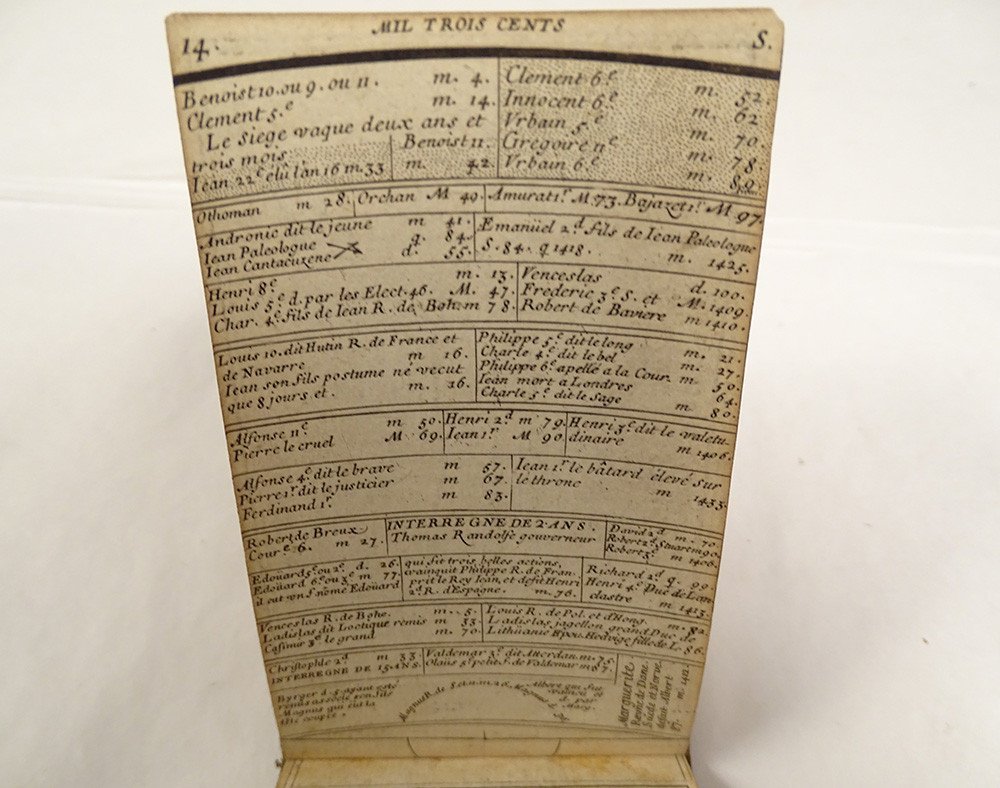 MIL TROIS CENTS
14. S.
Benoist 10. ou 9. ou 11. m. 4.
Clement 5.e m. 14.
Le Siege vaque deux ans et
trois mois.
Iean 22e élu l'an 16 m. 33
Benoist 11.
m. 42.
Clement 6e m. 52.
Innocent 6e m. 62
Vrbain 5e m. 70.
Gregoire 11e m. 78.
Vrbain 6e m. 89.
Othoman m 28.
Orchan M 49.
Amurat 1r M 73. Bajazet 1r M 97.
Andronic dit le jeune m 41.
Iean Paleologue q. 84.
Iean Cantacuzene d. 55.
Emanüel 2d fils de Iean Paleologue
S. 84. q 1418. m. 1425.
Henri 8e m. 13.
Louis 5e d. par les Elect. 46. M. 47.
Char. 4e fils de Iean R. de Boh. m 78.
Venceslas d. 100.
Frederic 3e S. et M. 1409.
Robert de Baviere m 1410.
Louis 10. dit Hutin R. de France et
de Navarre m 16.
Iean son fils postume né vecut
que 8 jours et. m. 16.
Philippe 5e dit le long m. 21.
Charle 4e dit le bel m. 27.
Philippe 6e apellé a la Cour. m. 50.
Iean mort a Londres 64.
Charle 5e dit le Sage m 80.
Alfonse 11e m 50.
Pierre le cruel M 69.
Henri 2d m 79.
Iean 1r M 90
Henri 3e dit le valetu
dinaire m 1406.
Alfonse 4e dit le brave m 57.
Pierre 1r dit le justicier m 67.
Ferdinand 1r. m 83.
Iean 1r le bâtard élevé sur
le throne m 1433.
Robert de Breux
Cour. e 6. m 27.
INTERREGNE DE 2 ANS.
Thomas Randolfe gouverneur
David 2d m. 70
Robert 2d Stuart m 90.
Robert 3e m 1406.
Edouard 5e ou 2e d. 26.
Edoüard 6e ou 3e m 77.
il eut un f. nomé Edoüard
qui fit trois belles actions,
vainquit Philippe R. de Fran
prit le Roy Iean, et defit Henri
2d R. d'Espagne. m. 76.
Richard 2d q. 99
Henri 4e Duc de Lan
clastre m 1413.
Venceslas R. de Bohe. m. 5.
Ladislas dit Loctique remis m 33.
Casimir 3e le grand m. 70.
Louis R. de Pol. et d'Hong. m. 82
Ladislas jagellon grand Duc de
Lithuanie Epou. Hedvige fille de L. 86.
Christophle 2d m 33.
INTERREGNE DE 15 ANS.
Valdemar 3e dit Atterdan. m. 75.
Olaüs 5e petit f. de Valdemar m 87.
Byrger d. 5. ayant esté
remis associe son fils
Magnus qui eut la
tête coupée.
Magnus R. de
Albert
Marguerite
Reine de Dane
Suede et Norve
defait Albert
m. 1412.